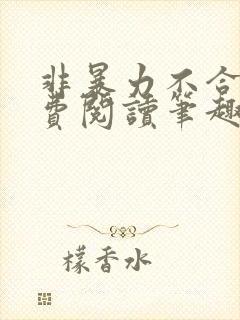 非暴力不合
費閱讀筆趣
檬香水